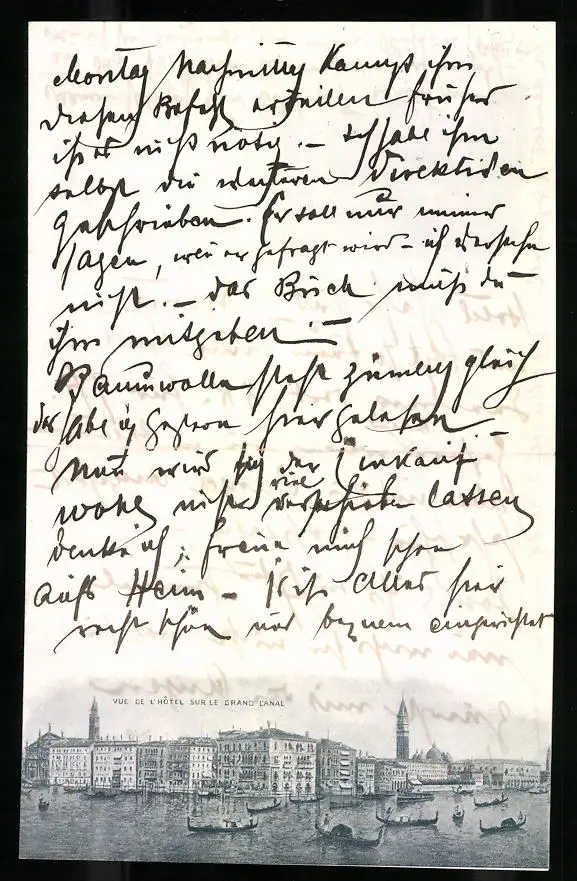 Montag Nachmittag kannst ihm
diesen Befehl erteilen früher
ist es nicht nötig. – Ich habe ihm
selbst die weiteren Direktiven
geschrieben. Er soll nur immer
sagen, wen er gefragt wird – ich verstehe
nicht. – Das Buch mußt du
ihm mitgeben. –
Baumwolle steht ziemlich gleich
das habe ich gestern hier gelesen –
Nun wird sich der Einkauf
viel
wohl nicht verschieben lassen
denke ich, freue mich schon
aufs Heim – Ist Alles hier
recht schön und bequem eingerichtet
VUE DE L'HÔTEL SUR LE GRAND CANAL